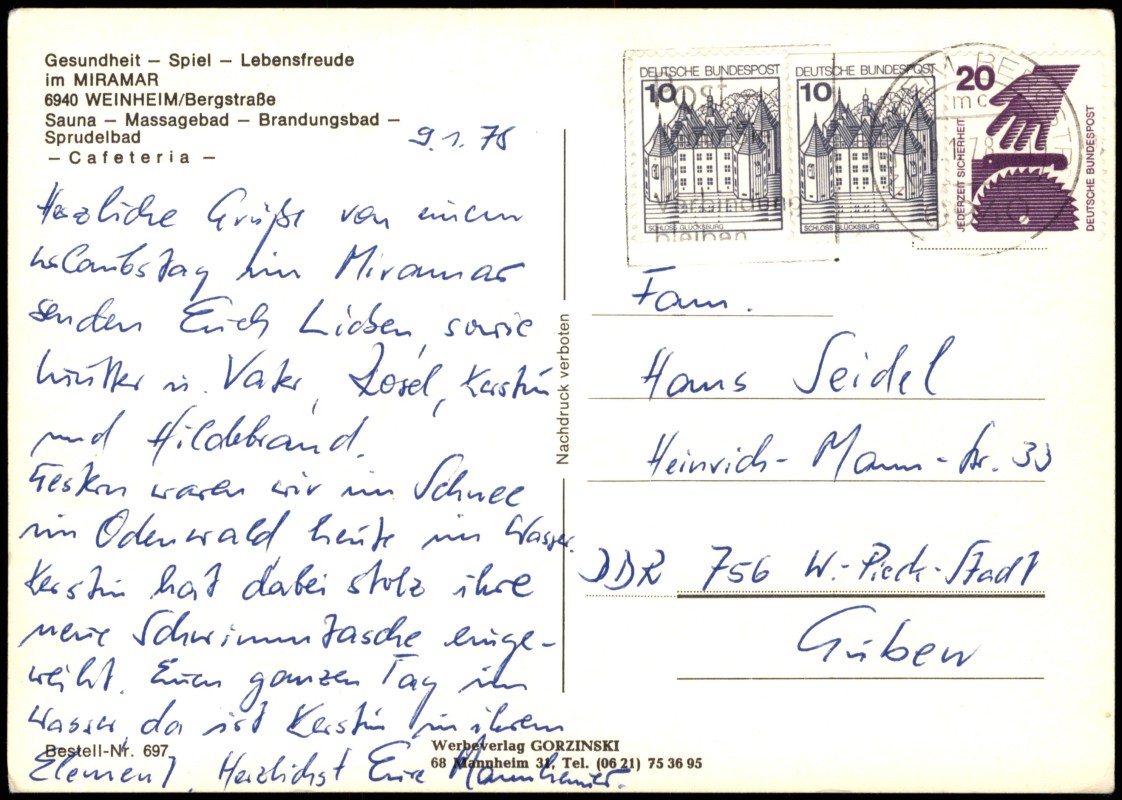 Gesundheit – Spiel – Lebensfreude
im MIRAMAR
6940 WEINHEIM/Bergstraße
Sauna – Massagebad – Brandungsbad –
Sprudelbad
– Cafeteria –
9.1.78
Herzliche Grüße von einem
Urlaubstag im Miramar
senden Euch Lieben, sowie
Mutter u. Vater, Rosel, Kerstin
und Hildebrand.
Gestern waren wir im Schnee
im Odenwald heute im Wasser.
Kerstin hat dabei stolz ihre
neue Schwimmtasche einge-
weiht. Einen ganzen Tag im
Wasser, da ist Kerstin in ihrem
Element, Herzlichst Eure Mannheimer.
Bestell-Nr. 697
Nachdruck verboten
Werbeverlag GORZINSKI
68 Mannheim 31, Tel. (06 21) 75 36 95
DEUTSCHE BUNDESPOST
10
SCHLOSS GLÜCKSBURG
DEUTSCHE BUNDESPOST
10
SCHLOSS GLÜCKSBURG
20
JEDERZEIT SICHERHEIT
DEUTSCHE BUNDESPOST
Post
Verbindung
bleiben
mc
Fam.
Hans Seidel
Heinrich-Mann-Str. 33
DDR 756 W.-Pieck-Stadt
Guben